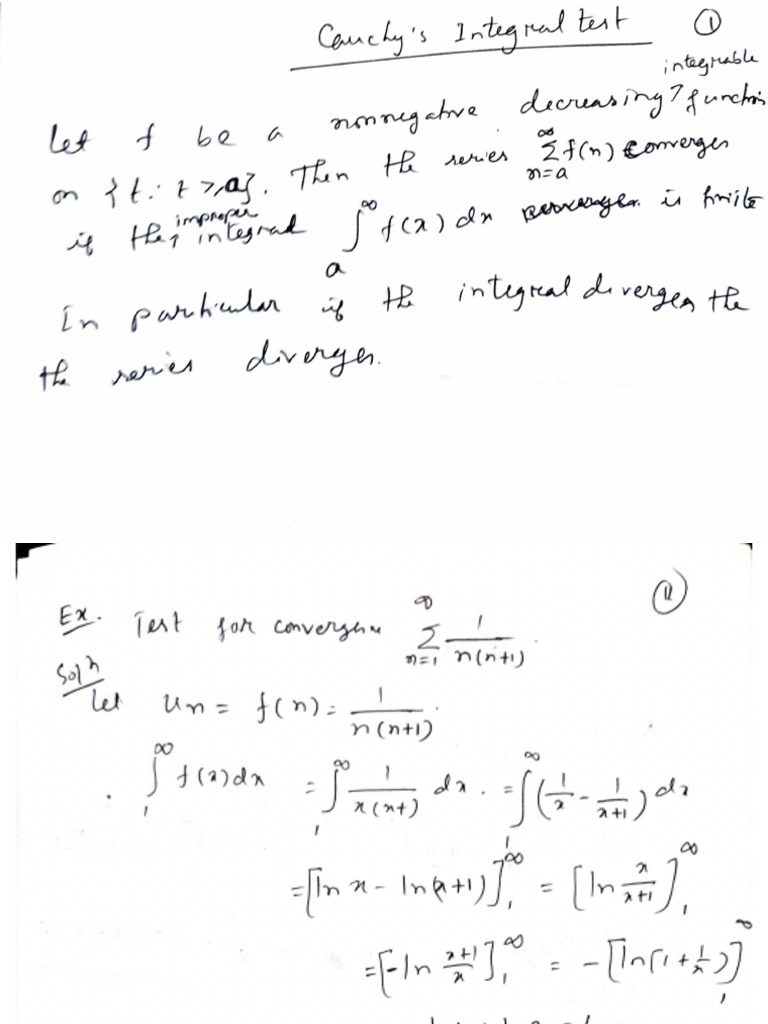 Cauchy's Integral test ①
integrable
Let f be a nonnegative decreasing function
on {t: t ≥ a}. Then the series ∑_{n=a}^{∞} f(n) converges
if the improper integral ∫_a^∞ f(x) dx is finite
In particular if the integral diverges the
the series diverges.
⑪
Ex. Test for convergence ∑_{n=1}^{∞} 1/(n(n+1)).
Solⁿ
Let u_n = f(n) = 1/(n(n+1)).
∫_1^∞ f(x) dx = ∫_1^∞ 1/(x(x+)) dx. = ∫_1^∞ (1/x - 1/(x+1)) dx
= [ln x - ln(x+1)]_1^∞ = [ln x/(x+1)]_1^∞
= [-ln (x+1)/x]_1^∞ = -[ln(1 + 1/x)]_1^∞